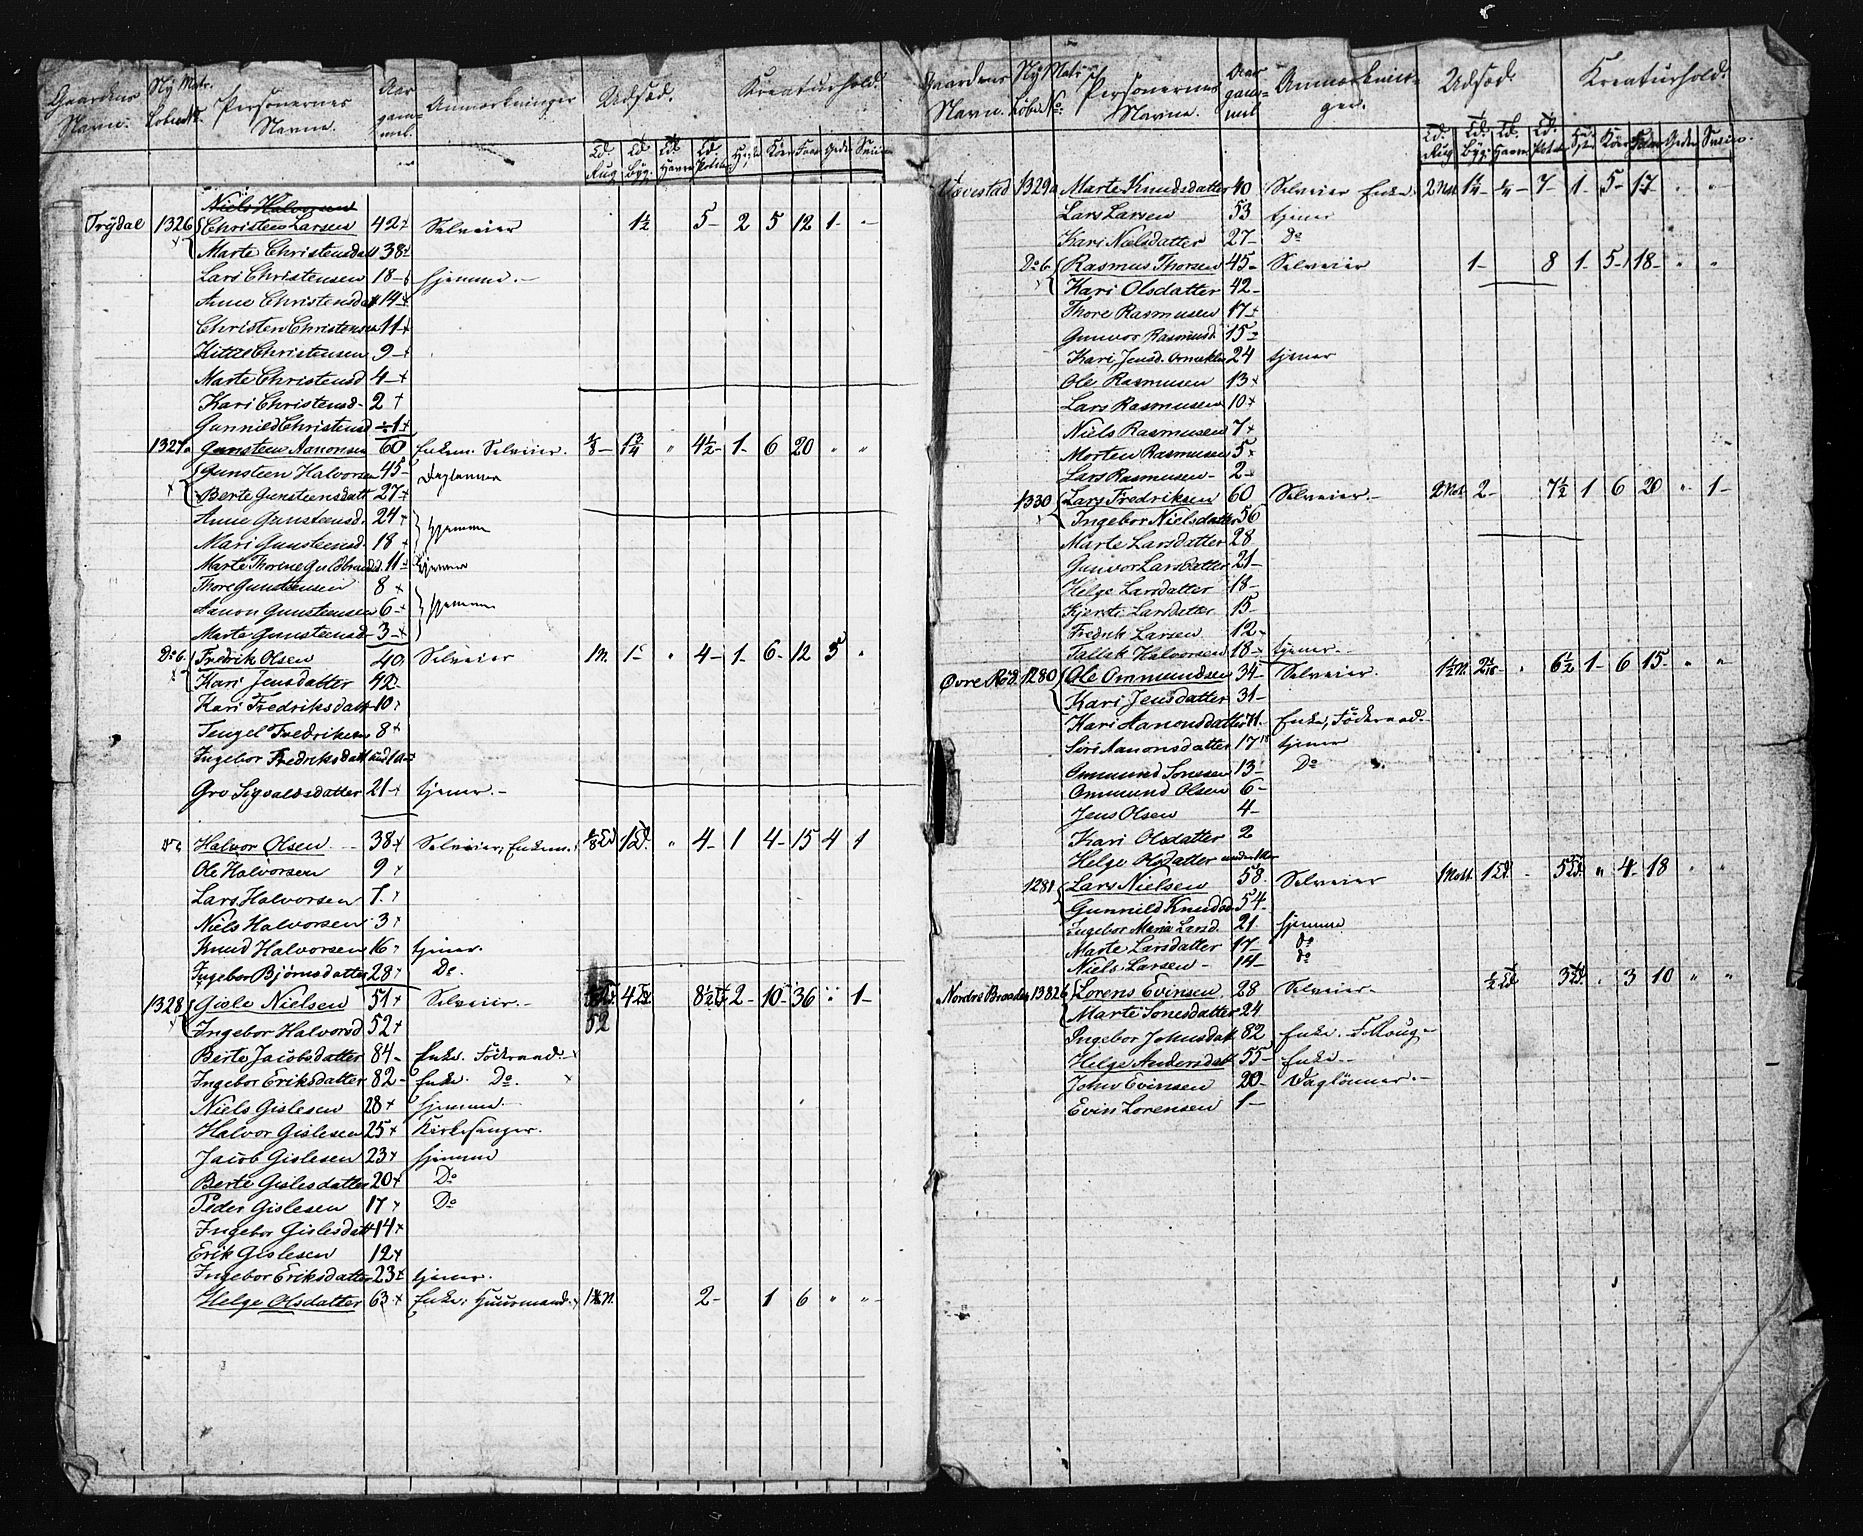 Gaardens Navn. Ny Matr. Løbe No. Personernes Navne. Aar gammel. Anmærkninger Udsæd. Kreaturhold.
Td. Rug Td. Byg. Td. Havre Td. Potet. Heste Kør Faar Geder Sviin
Niels Halvorsen
Trydal 1326 Christen Larsen 42 Selveier 1½ 5 2 5 12 1
Marte Christensdatt 38
Lars Christensen 18 hjemme.
Anne Christensdatt 14
Christen Christensen 11
Kittel Christensen 9
Marte Christensd 4
Kari Christensd 2
Gunnild Christensd 1
1327a Gunsteen Aanonsen 60 Enkem. Selveier. 1/8 1¾ " 4½ 1 6 20 " "
Gunsteen Halvorsen 45 Daglønner
Berte Gunsteensdatt 27
Anne Gunsteensd. 24 hjemme
Mari Gunsteensd. 18
Marte Thorine Guldbrandsd. 11 tjener
Thore Gunsteensen 8
Aanon Gunsteensen 6 hjemme
Marte Gunsteensd 3
Do b. Fredrik Olsen 40 Selveier 1 M. 1 " 4 1 6 12 5 "
Kari Jensdatter 42
Kari Fredriksdatt 10
Tengel Fredriksen 8
Ingebor Fredriksdatt und 1 Aar
Gro Sigvaldsdatter 21 tjener.
Do c Halvor Olsen 38 Selveier, Enkem. 1/8 Td 1 Td. " 4 1 4 15 4 1
Ole Halvorsen 9
Lars Halvorsen 7
Niels Halvorsen 3
Knud Halvorsen 16 tjener.
Ingebor Bjørnsdatter 28 Do.
1328 Gisle Nielsen 51 Selveier. 4 Td 8½ Td 2 10 36 " 1
Ingebor Halvorsd 52 52
Berte Jacobsdatter 84 Enke. Föderaad
Ingebor Eriksdatter 82 Enke. Do.
Niels Gislesen 28 hjemme
Halvor Gislesen 25 Kirkesanger.
Jacob Gislesen 23 hjemme
Berte Gislesdatter 20 Do
Peder Gislesen 17 Do
Ingebor Gislesdatt 14
Erik Gislesen 12
Ingebor Eriksdatter 23 tjener.
Helge Olsdatter 63 Enke, Huusmand. 2 1 6 " "
Gaardens Navn. Ny Matr Løbe No. Personernes Navne. Aar gammel Anmærkninger. Udsæd. Kreaturhold.
Td. Rug Td. Byg. Td. Havre Td. Potet. Heste Kør Faar Geder Sviin.
Vævestad 1329a Marte Knudsdatter 40 Selveier Enke. 2 Mot 1¼ ¼ 7 1 5 17 " "
Lars Larsen 53 tjener
Kari Nielsdatter 27 Do
Do b. Rasmus Thorsen 45 Selveier 1 8 1 5 18 " "
Kari Olsdatter 42
Thore Rasmusen 17
Gunvor Rasmusd. 15
Kari Jensd. 24 tjener
Ole Rasmusen 13
Lars Rasmusen 10
Niels Rasmusen 7
Morten Rasmusen 5
Lars Rasmusen 2
1330 Lars Fredriksen 60 Selveier. 2 Mot 2 7½ 1 6 20 " 1
Ingebor Nielsdatter 56
Marte Larsdatter 28
Gunvor Larsdatter 21
Helge Larsdatter 18
Kjersti Larsdatter 15
Fredrik Larsen 12
Tallak Halvorsen 18 tjener
Øvre Rød. 1280 Ole Ommundsen 34 Selveier. 1½ M. " 6½ 1 6 15 " "
Kari Jensdatter 31
Kari Aanonsdatter 71. Enke, Föderaad.
Siri Aanonsdatter 17 tjener
Ommund Tonesen 13 Do
Ommund Olsen 6
Jens Olsen 4
Kari Olsdatter 2
Helge Olsdatter under 1 Aar
1281 Lars Nielsen 58 Selveier 1 Mott 1 Td. 5 Td. " 4 18 " "
Gunnild Knudsd 54
Ingebor Maria Larsd. 21 hjemme
Marte Larsdatter 17 do
Niels Larsen 14 do
Nordre Braadla 1382b Lorens Evinsen. 28 Selveier ½ Td 3 Td. " 3 10 " "
Marte Tonesdatter 24
Ingebor Johnsdatt. 82 Enke.
Helge Andersdatt 55 Enke
John Evinsen 20 Daglönner.
Evin Lorensen 1